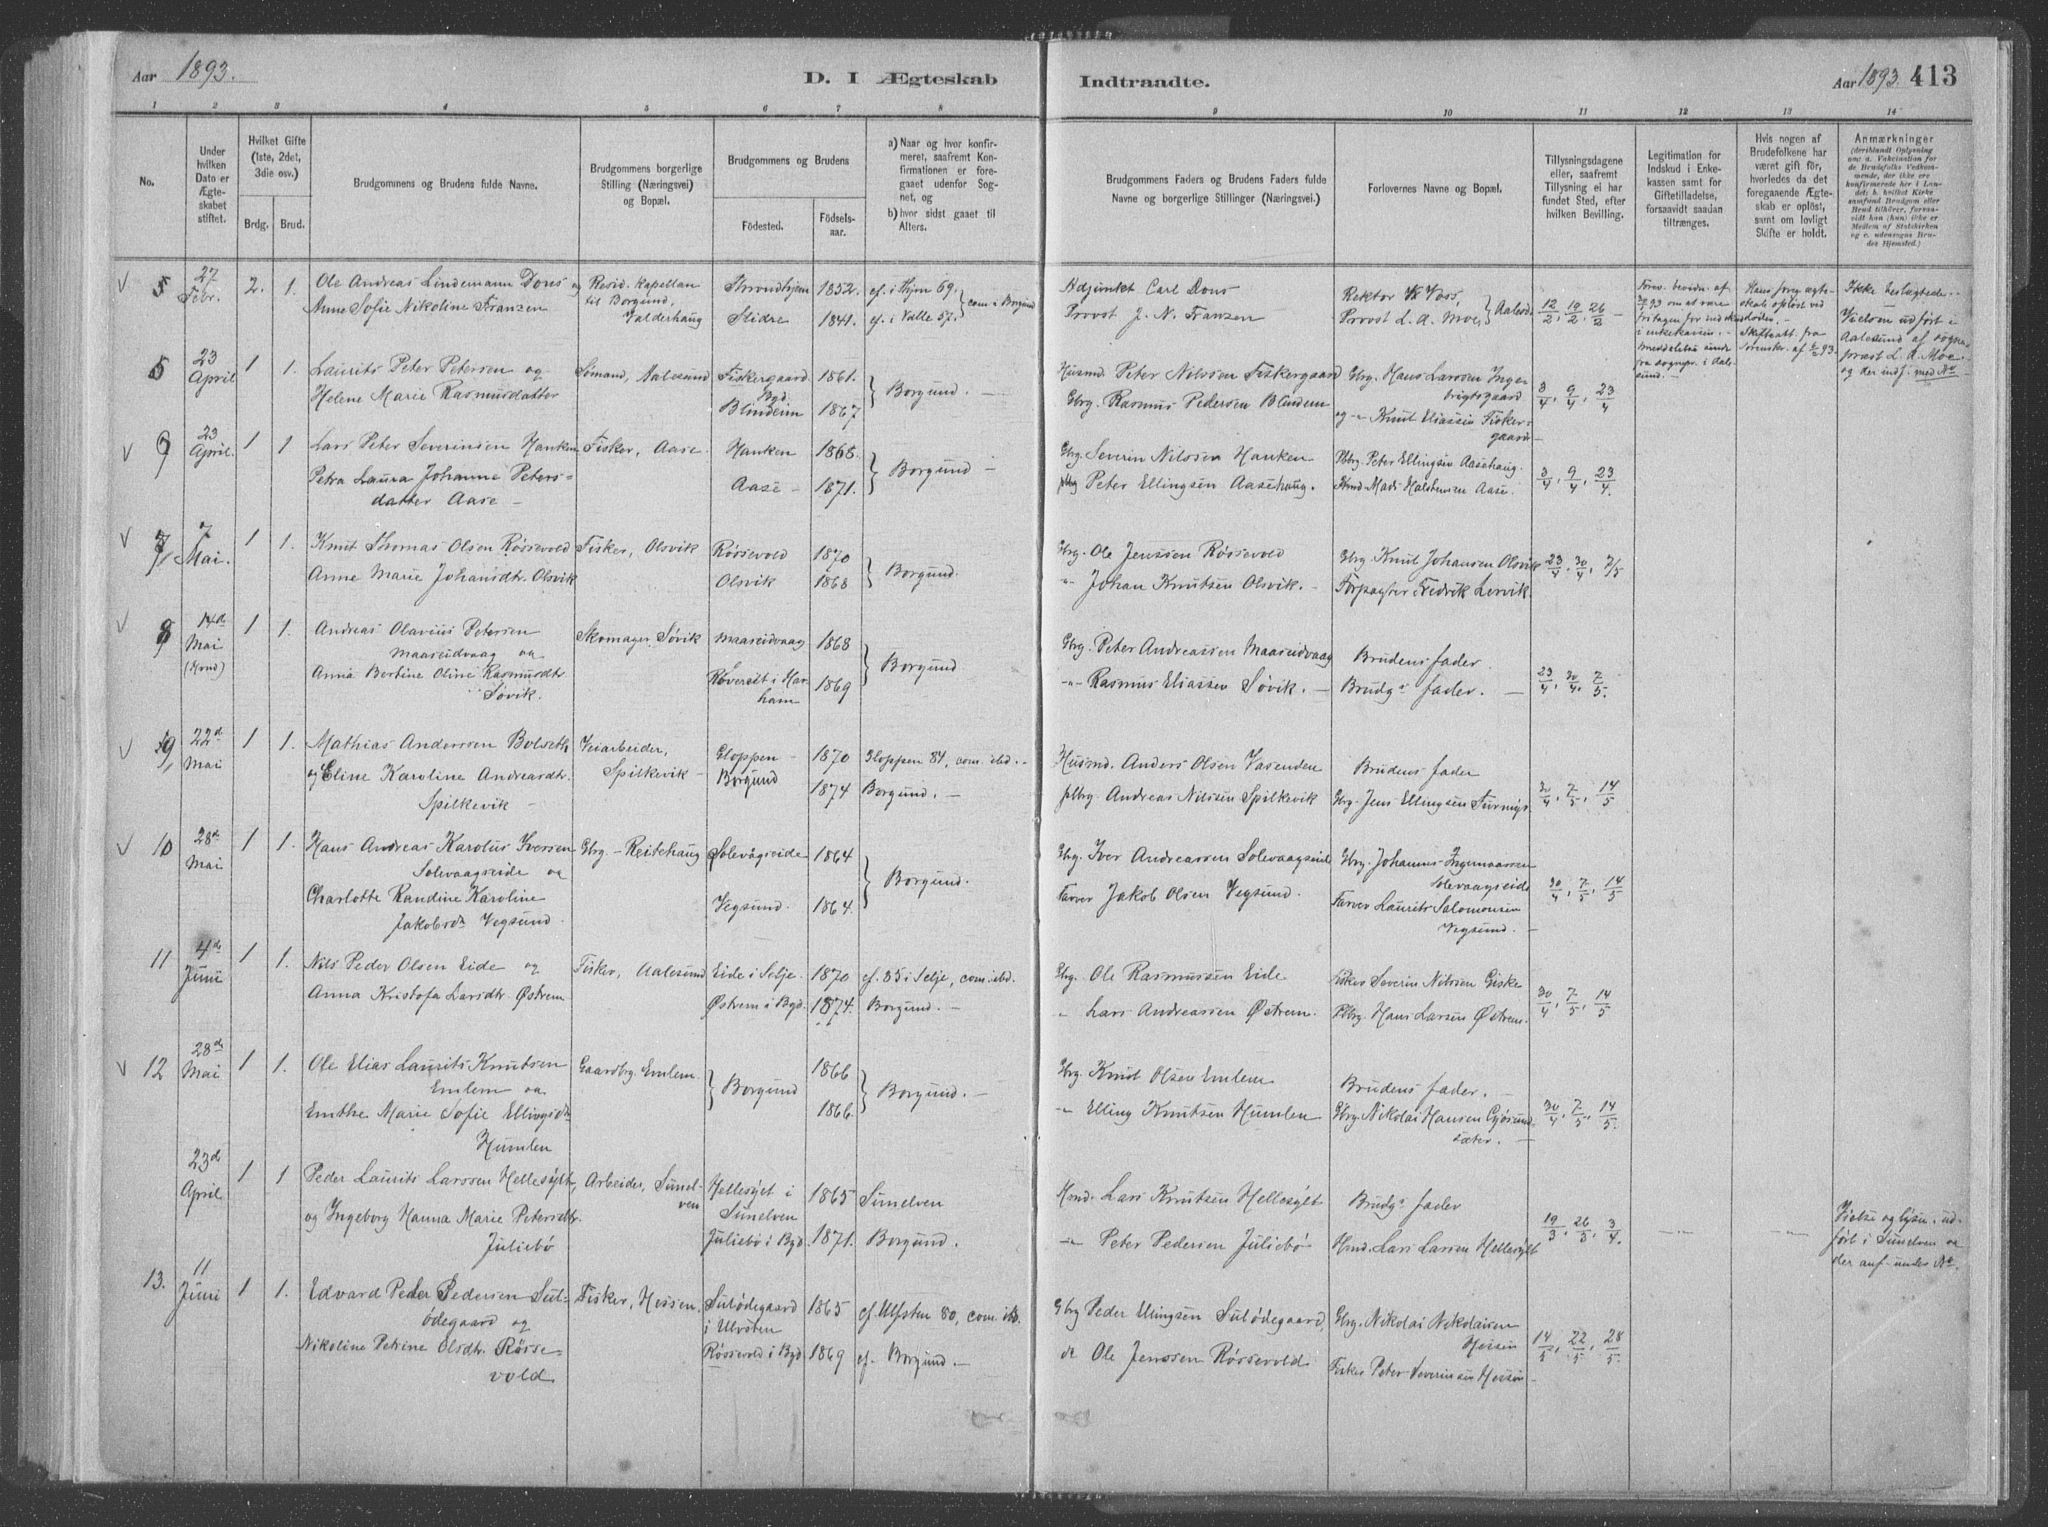 Aar 1893.
D. I Ægteskab
Indtraadte.
Aar 1893. 413
1 2 3 4 5 6 7 8 9 10 11 12 13 14
No.
Under hvilken Dato er Ægteskabet stiftet.
Hvilket Gifte (1ste, 2det, 3die osv.)
Brdg. Brud.
Brudgommens og Brudens fulde Navne.
Brudgommens borgerlige Stilling (Næringsvei) og Bopæl.
Brudgommens og Brudens
Fødested. Fødsels-aar.
a) Naar og hvor konfirmeret, saafremt Konfirmationen er foregaaet udenfor Sognet, og
b) hvor sidst gaaet til Alters.
Brudgommens Faders og Brudens Faders fulde Navne og borgerlige Stillinger (Næringsvei.)
Forlovernes Navne og Bopæl.
Tillysningsdagene eller, saafremt Tillysning ei har fundet Sted, efter hvilken Bevilling.
Legitimation for Indskud i Enkekassen samt for Giftetilladelse, forsaavidt saadan tiltrænges.
Hvis nogen af Brudefolkene har været gift før, hvorledes da det foregaaende Ægteskab er opløst, samt om lovligt Skifte er holdt.
Anmærkninger
(deriblandt Oplysning om: a. Vakcination for de Brudefolks Vedkommende, der ikke ere konfirmerede her i Landet; b. hvilket Kirkesamfund Brudgom eller Brud tilhører, forsaavidt han (hun) ikke er Medlem af Statskirken og c. udensogns Brudes Hjemsted.)
5 27 Febr. 2. 1. Ole Andreas Lindemann Dons og Resid. kapellan Trondhjem 1852. cf. i Thjm 69. } com. i Borgund
Anne Sofie Nikoline Franzen til Borgund, Valderhaug Slidre 1841. cf. i Valle 57.
Adjunkt Carl Dons Rektor Voss, } Aalesd. 12/2, 19/2, 26/2
Provst J. N. Franzen Provst L. A. Moe,
Ikke beslægtede. Vielsen udført i Aalesund af sognepræst L. A. Moe og der indf. med No
5 23 April 1 1. Laurits Peter Petersen og Sömand, Aalesund Fiskergaard Bgd. 1861. } Borgund. —
Helene Marie Rasmusdatter Blindeim 1867
Husmd. Peter Nilssen Fiskergaard Gbrg. Hans Larssen Ingebrigtsgaard 3/4, 9/4, 23/4
Gbrg. Rasmus Pedersen Blindem og Knut Eliassen Fiskergaard
6 23 April. 1 1 Lars Peter Severinsen Hanken Fisker, Aase Hanken 1868. } Borgund —
Petra Laura Johanne Petersdatter Aase — Aase — 1871.
Gbrg. Severin Nilssen Hanken Plbrg. Peter Ellingsen Aasehaug. 3/4, 9/4, 23/4.
plbg Peter Ellingsen Aasehaug. Hmd. Mads Halstensen Aase.
7 7 Mai. 1 1. Knut Thomas Olsen Røssevold Fisker, Olsvik Røssevold 1870 } Borgund.
Anne Marie Johansdtr. Olsvik Olsvik 1868
Gbrg. Ole Jenssen Røssevold Gbrg. Knut Johansen Olsvik 23/4, 30/4, 7/5
" Johan Knutsen Olsvik. — Forpagter Fredrik Lervik.
8 14de Mai 1 1. Andreas Olavius Petersen Maaseidvaag og Skomager, Søvik Maaseidvaag 1868 } Borgund
Anna Bertine Oline Rasmusdtr Søvik. Røvereit i Harham 1869
Gbrg. Peter Andreassen Maaseidvaag Brudens fader. 23/4, 30/4, 7/5.
" Rasmus Eliassen Søvik. — Brudgs fader. —
9 22d Mai 1 1. Mathias Anderssen Bolseth Veiarbeider, Gloppen 1870 Gloppen 84, com. ibd. —
og Eline Karoline Andreasdtr. Spilkevik — Spilkevik — Borgund 1874 Borgund. —
Husmd. Anders Olsen Vasenden Brudens fader 30/4, 7/5, 14/5
plbrg. Andreas Nilssen Spilkevik Gbrg. Jens Ellingsen
10 28de Mai 1 1. Hans Andreas Karolus Iversen Solevaagseide og Gbrg — Reitehaug Solevågseide 1864 } Borgund.
Charlotte Randine Karoline Jakobsdr. Vegsund Vegsund. 1864.
Gbrg. Iver Andreassen Solevaagseide Gbrg. Johannes Ingemaassen Solevaagseide 30/4, 7/5, 14/5
Farver Jakob Olsen Vegsund. Farver Laurits Salomonsen Vegsund. —
11 4de Juni 1 1. Nils Peder Olsen Eide og Fisker, Aalesund Eide i Selje 1870 cf. 85 i Selje, com. ibd.
Anna Kristofa Larsdtr. Østrem Østrem i Bgd. 1874. Borgund. —
Gbrg. Ole Rasmussen Eide Fisker Severin Nilssen Giske 30/4, 7/5, 14/5
" Lars Andreassen Østrem. Plbrg. Hans Larsen Østrem.
12 28de Mai 1 1. Ole Elias Laurits Knutsen Emlem og Gaardbrg. Emlem. } Borgund 1866 } Borgund. —
Emthe Marie Sofie Ellingsdtr Humlen 1866.
Gbrg. Knut Olsen Emlem Brudens fader. 30/4, 7/5, 14/5.
" Elling Knutsen Humlen Gbrg. Nikolai Hansen Gjøsundsæter. —
23de April 1 1 Peder Laurits Larssen Hellesylt, Arbeider, Sunelven Hellesylt i Sunelven 1865 Sunelven
og Ingeborg Hanna Marie Petersdtr. Juliebø Juliebø i Bgd. 1871. Borgund.
Hmd. Lars Knutsen Hellesylt Brudgs fader 19/3, 26/3, 3/4.
" Peter Pedersen Juliebø Hmd. Lars Larsen Hellesylt
Vielse og lysn. udført i Sunelven og der anf. under No.
13. 11 Juni 1 1. Edvard Peder Pedersen Sulødegaard og Fisker, Hessen. Sulødegaard i Ulvsten 1865 cf. Ulfsten 80, com. ib.
Nikoline Petrine Olsdtr. Røssevold Røssevold i Bgd 1869 cf. Borgund. —
Gbrg Peder Ellingsen Sulødegaard, Gbrg. Nikolai Nikolaisen Hessen 14/5, 22/5, 28/5.
do Ole Jenssen Røssevold Fisker Peter Severinsen Hessen